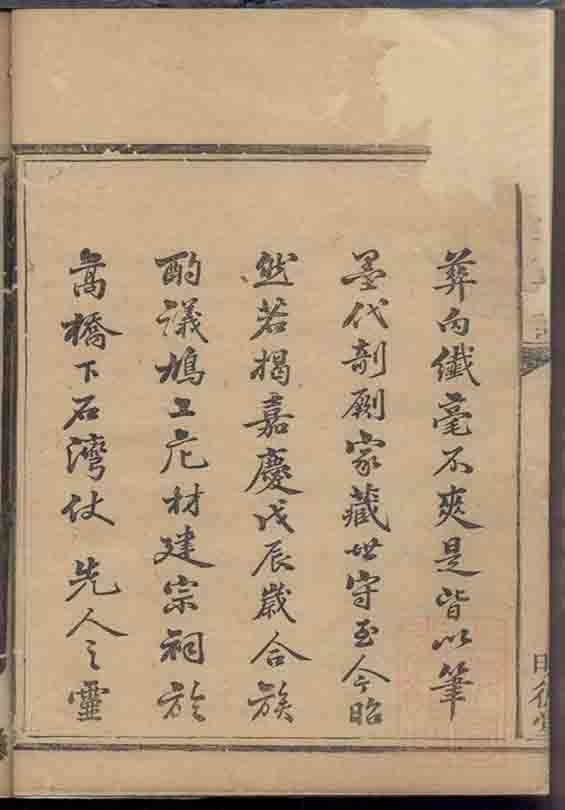 葬向纖毫不爽是皆以筆
墨代剞劂家藏世守至今昭
然若揭嘉慶戊辰歲合族
酌議鳩工庀材建宗祠於
高橋下石灣仗 先人之靈